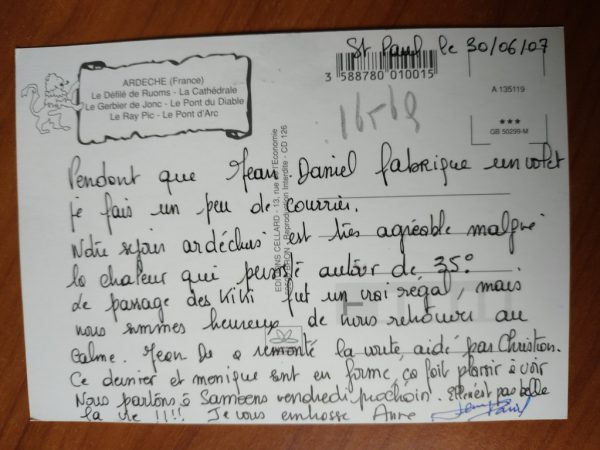 St Paul le 30/06/07
ARDECHE (France)
Le Défilé de Ruoms - La Cathédrale
Le Gerbier de Jonc - Le Pont du Diable
Le Ray Pic - Le Pont d'Arc
3 588780 010015
A 135119
★★★
GB 50299-M
16-69
EDITIONS CELLARD - 13, rue de l'Economie
BRON - Reproduction Interdite - CD 126
Pendant que Jean Daniel fabrique un volet
je fais un peu de courrier.
Notre séjour ardéchois est très agréable malgré
la chaleur qui persiste autour de 35°
Le passage des Kiki fut un vrai régal, mais
nous sommes heureux de nous retrouver au
calme. Jean Da a remonté la voute, aidé par Christian.
Ce dernier et monique sont en forme, ça fait plaisir à voir
Nous partons à Samoëns vendredi prochain. Elle n'est pas belle
la vie !!!! Je vous embrasse Anne